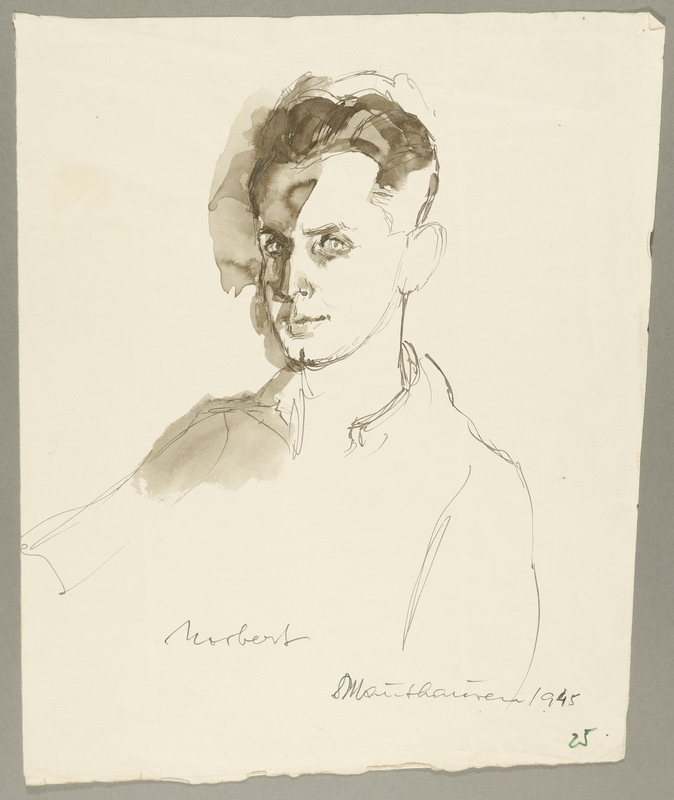 Norbert
Mauthausen 1945
25